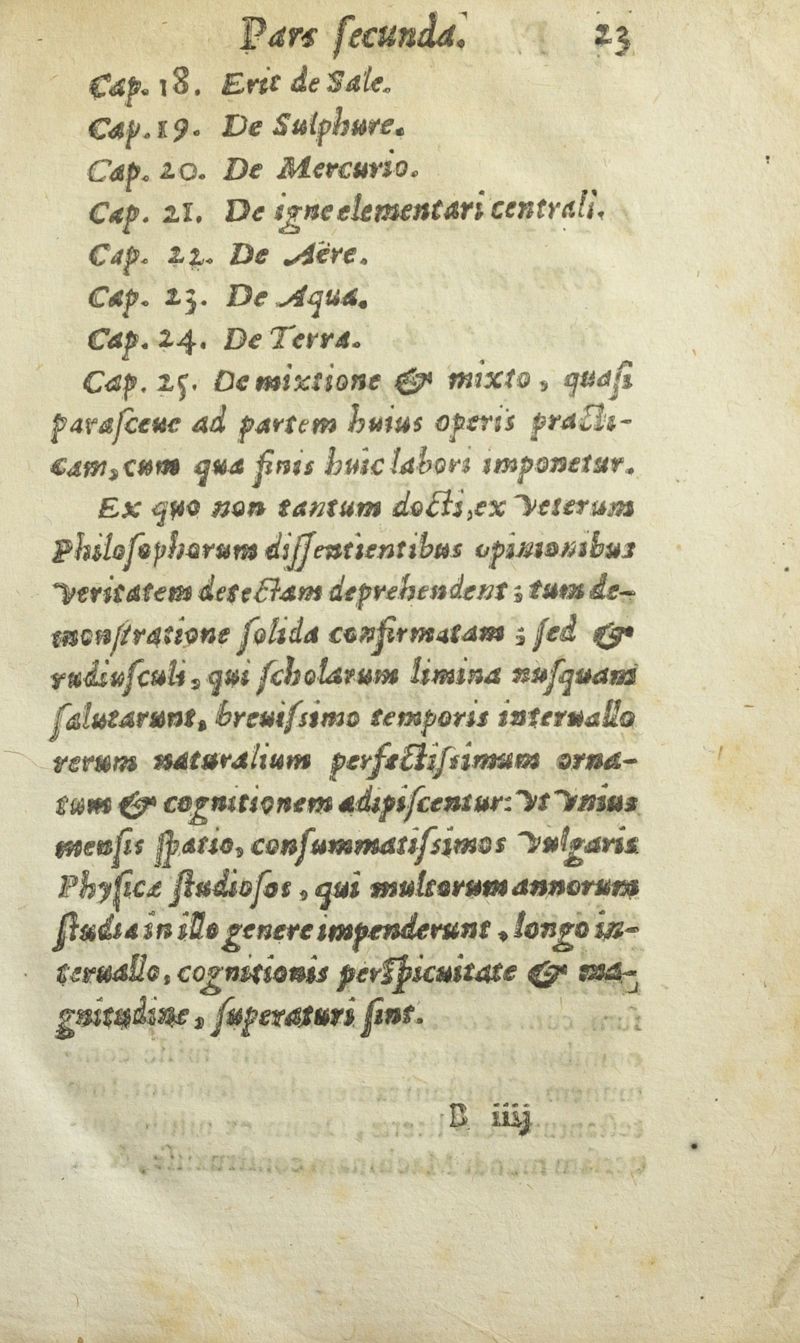 Pars ſecunda. 23
Cap. 18. Erit de Sale.
Cap. 19. De Sulphure.
Cap. 20. De Mercurio.
Cap. 21. De igne elementari centrali.
Cap. 22. De Aëre.
Cap. 23. De Aqua.
Cap. 24. De Terra.
Cap. 25. De mixtione & mixto, quaſi
paraſceue ad partem huius operis practi-
cam, cum qua finis huic labori imponetur.
Ex quo non tantum docti, ex veterum
Philoſophorum diſſentientibus opinionibus
veritatem detectam deprehendent; tum de-
monſtratione ſolida confirmatam; ſed &
rudiuſculi, qui ſcholarum limina nuſquam
ſalutarunt, breuiſsimo temporis interuallo
rerum naturalium perfectiſsimum orna-
tum & cognitionem adipiſcentur: vt vnius
menſis ſpatio, conſummatiſsimos vulgaris
Phyſicæ ſtudioſos, qui multorum annorum
ſtudia in illo genere impenderunt, longo in-
teruallo, cognitionis perſpicuitate & ma-
gnitudine, ſuperaturi ſint.
B iiij